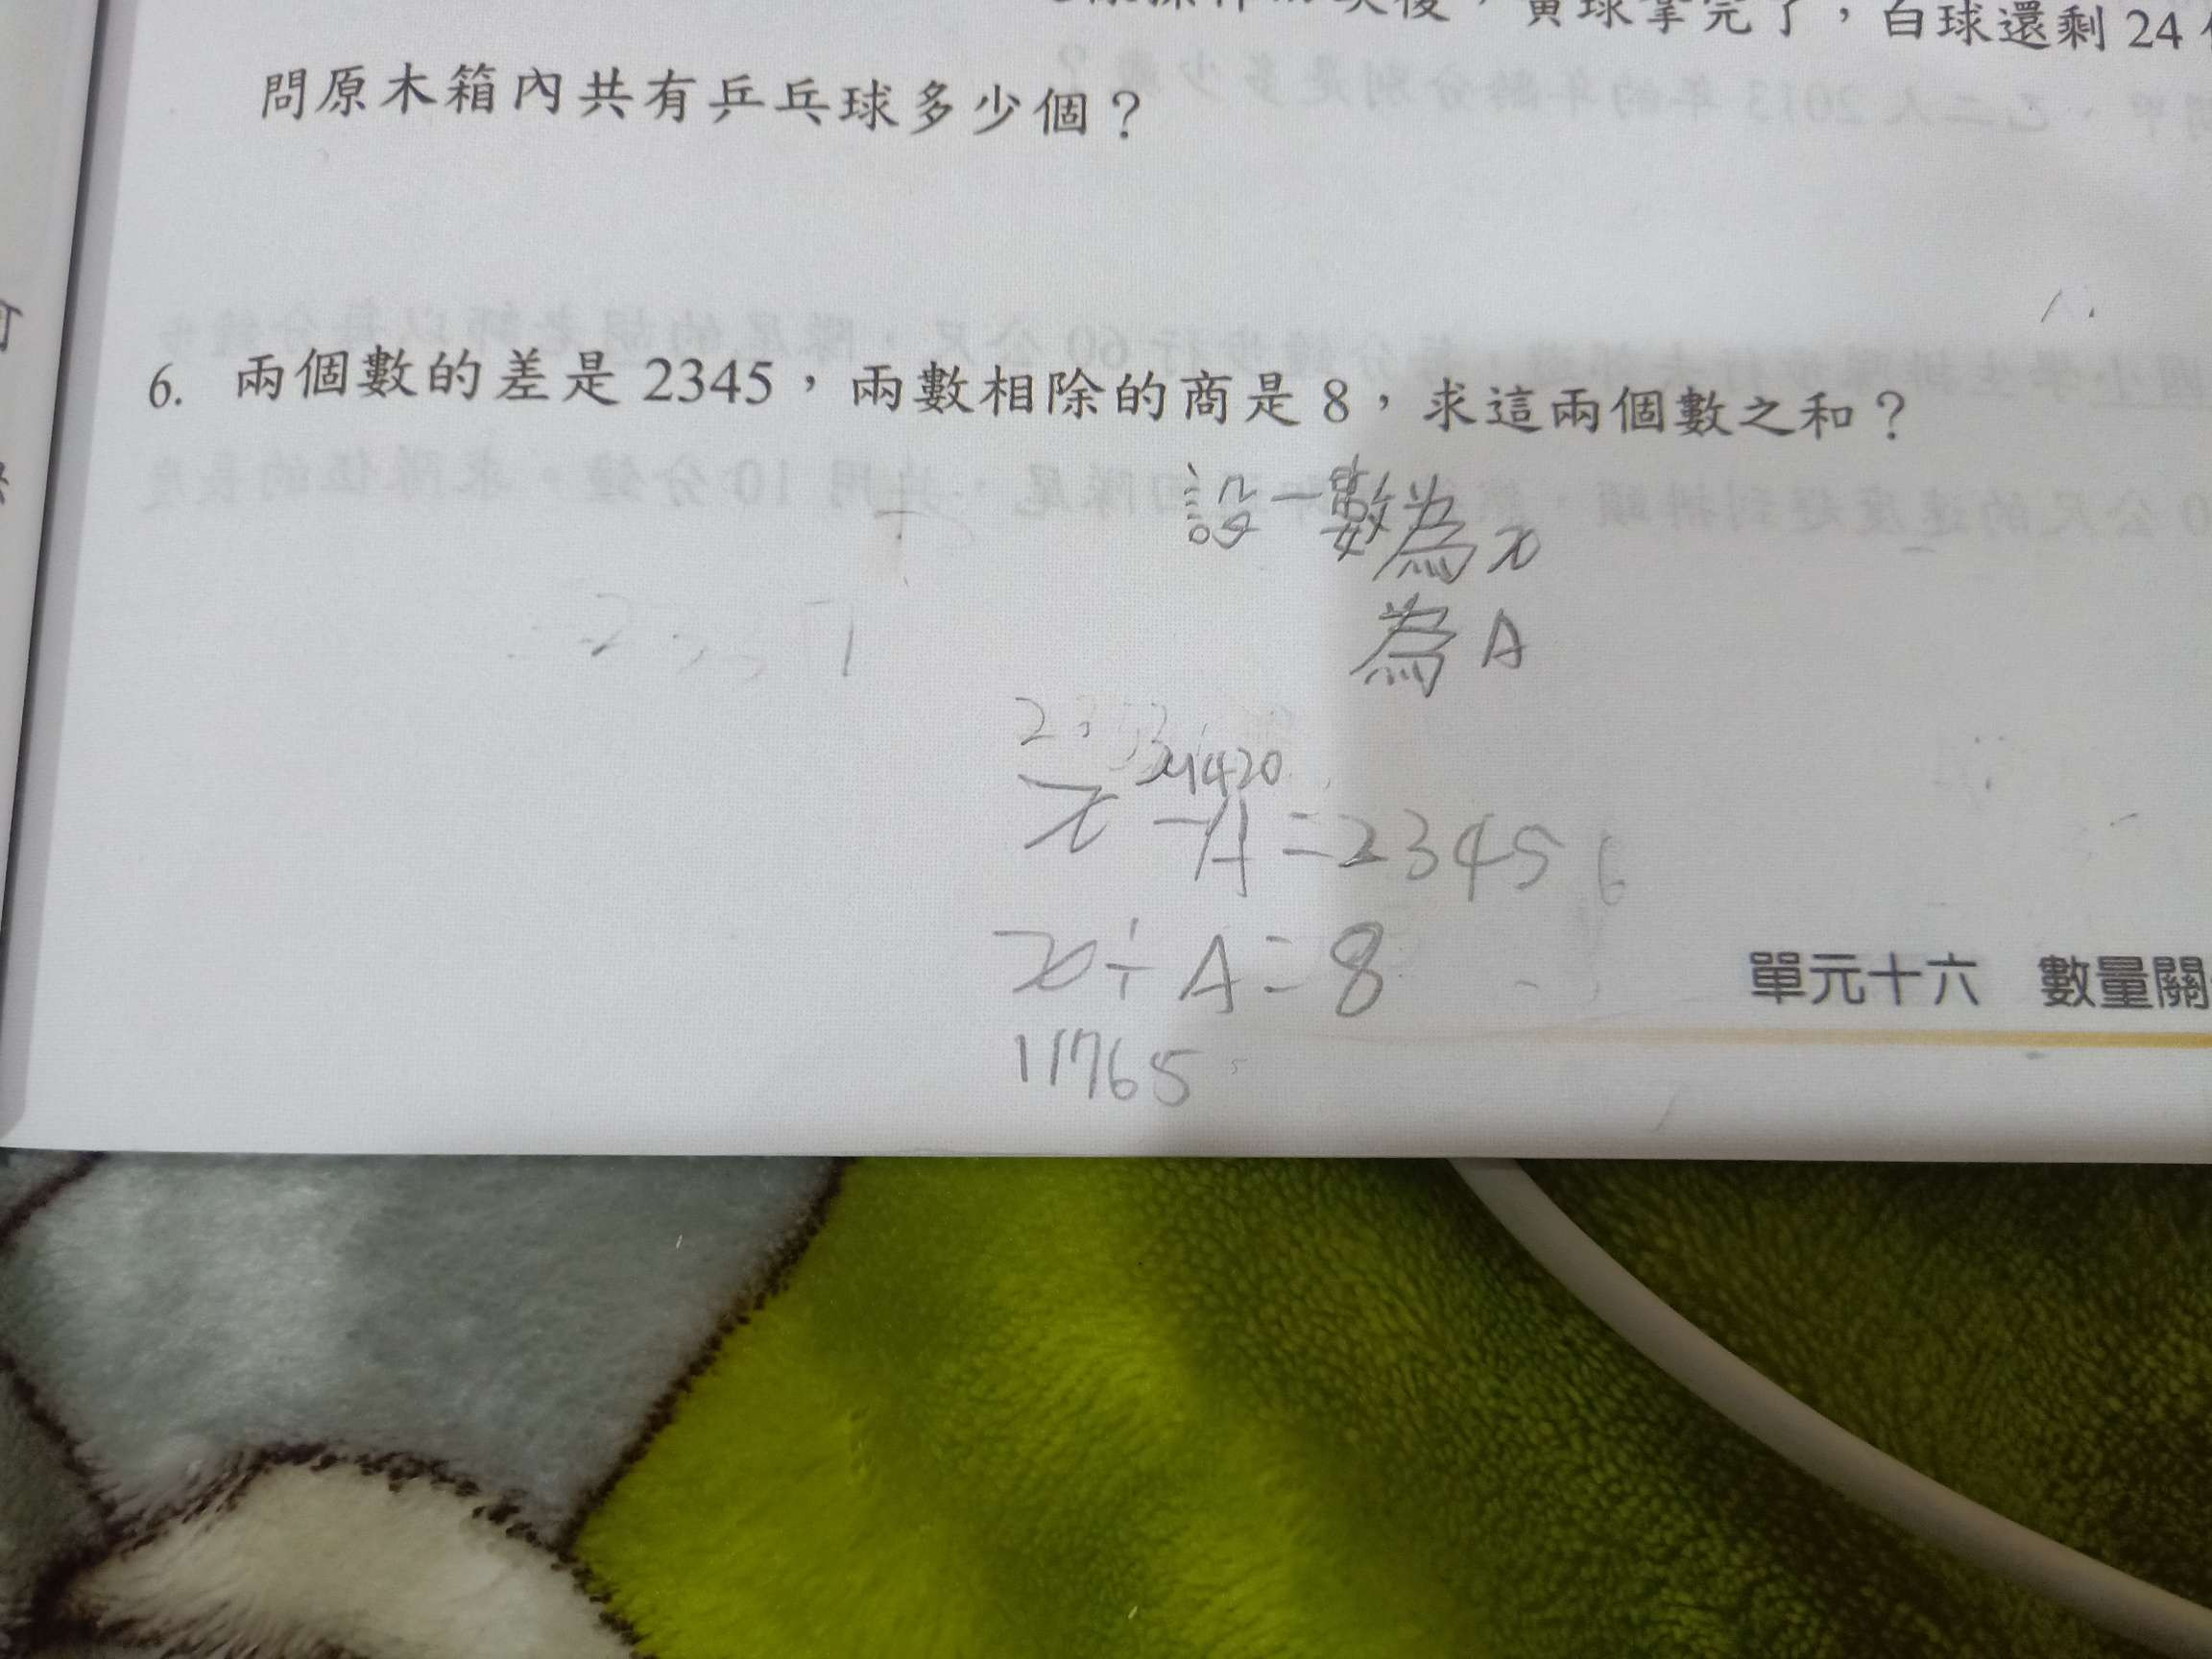 黃球拿完了，白球還剩 24
問原木箱內共有乒乓球多少個？
6. 兩個數的差是 2345，兩數相除的商是 8，求這兩個數之和？
設一數為x
為A
x-A=2345
x÷A=8
11765
單元十六 數量關